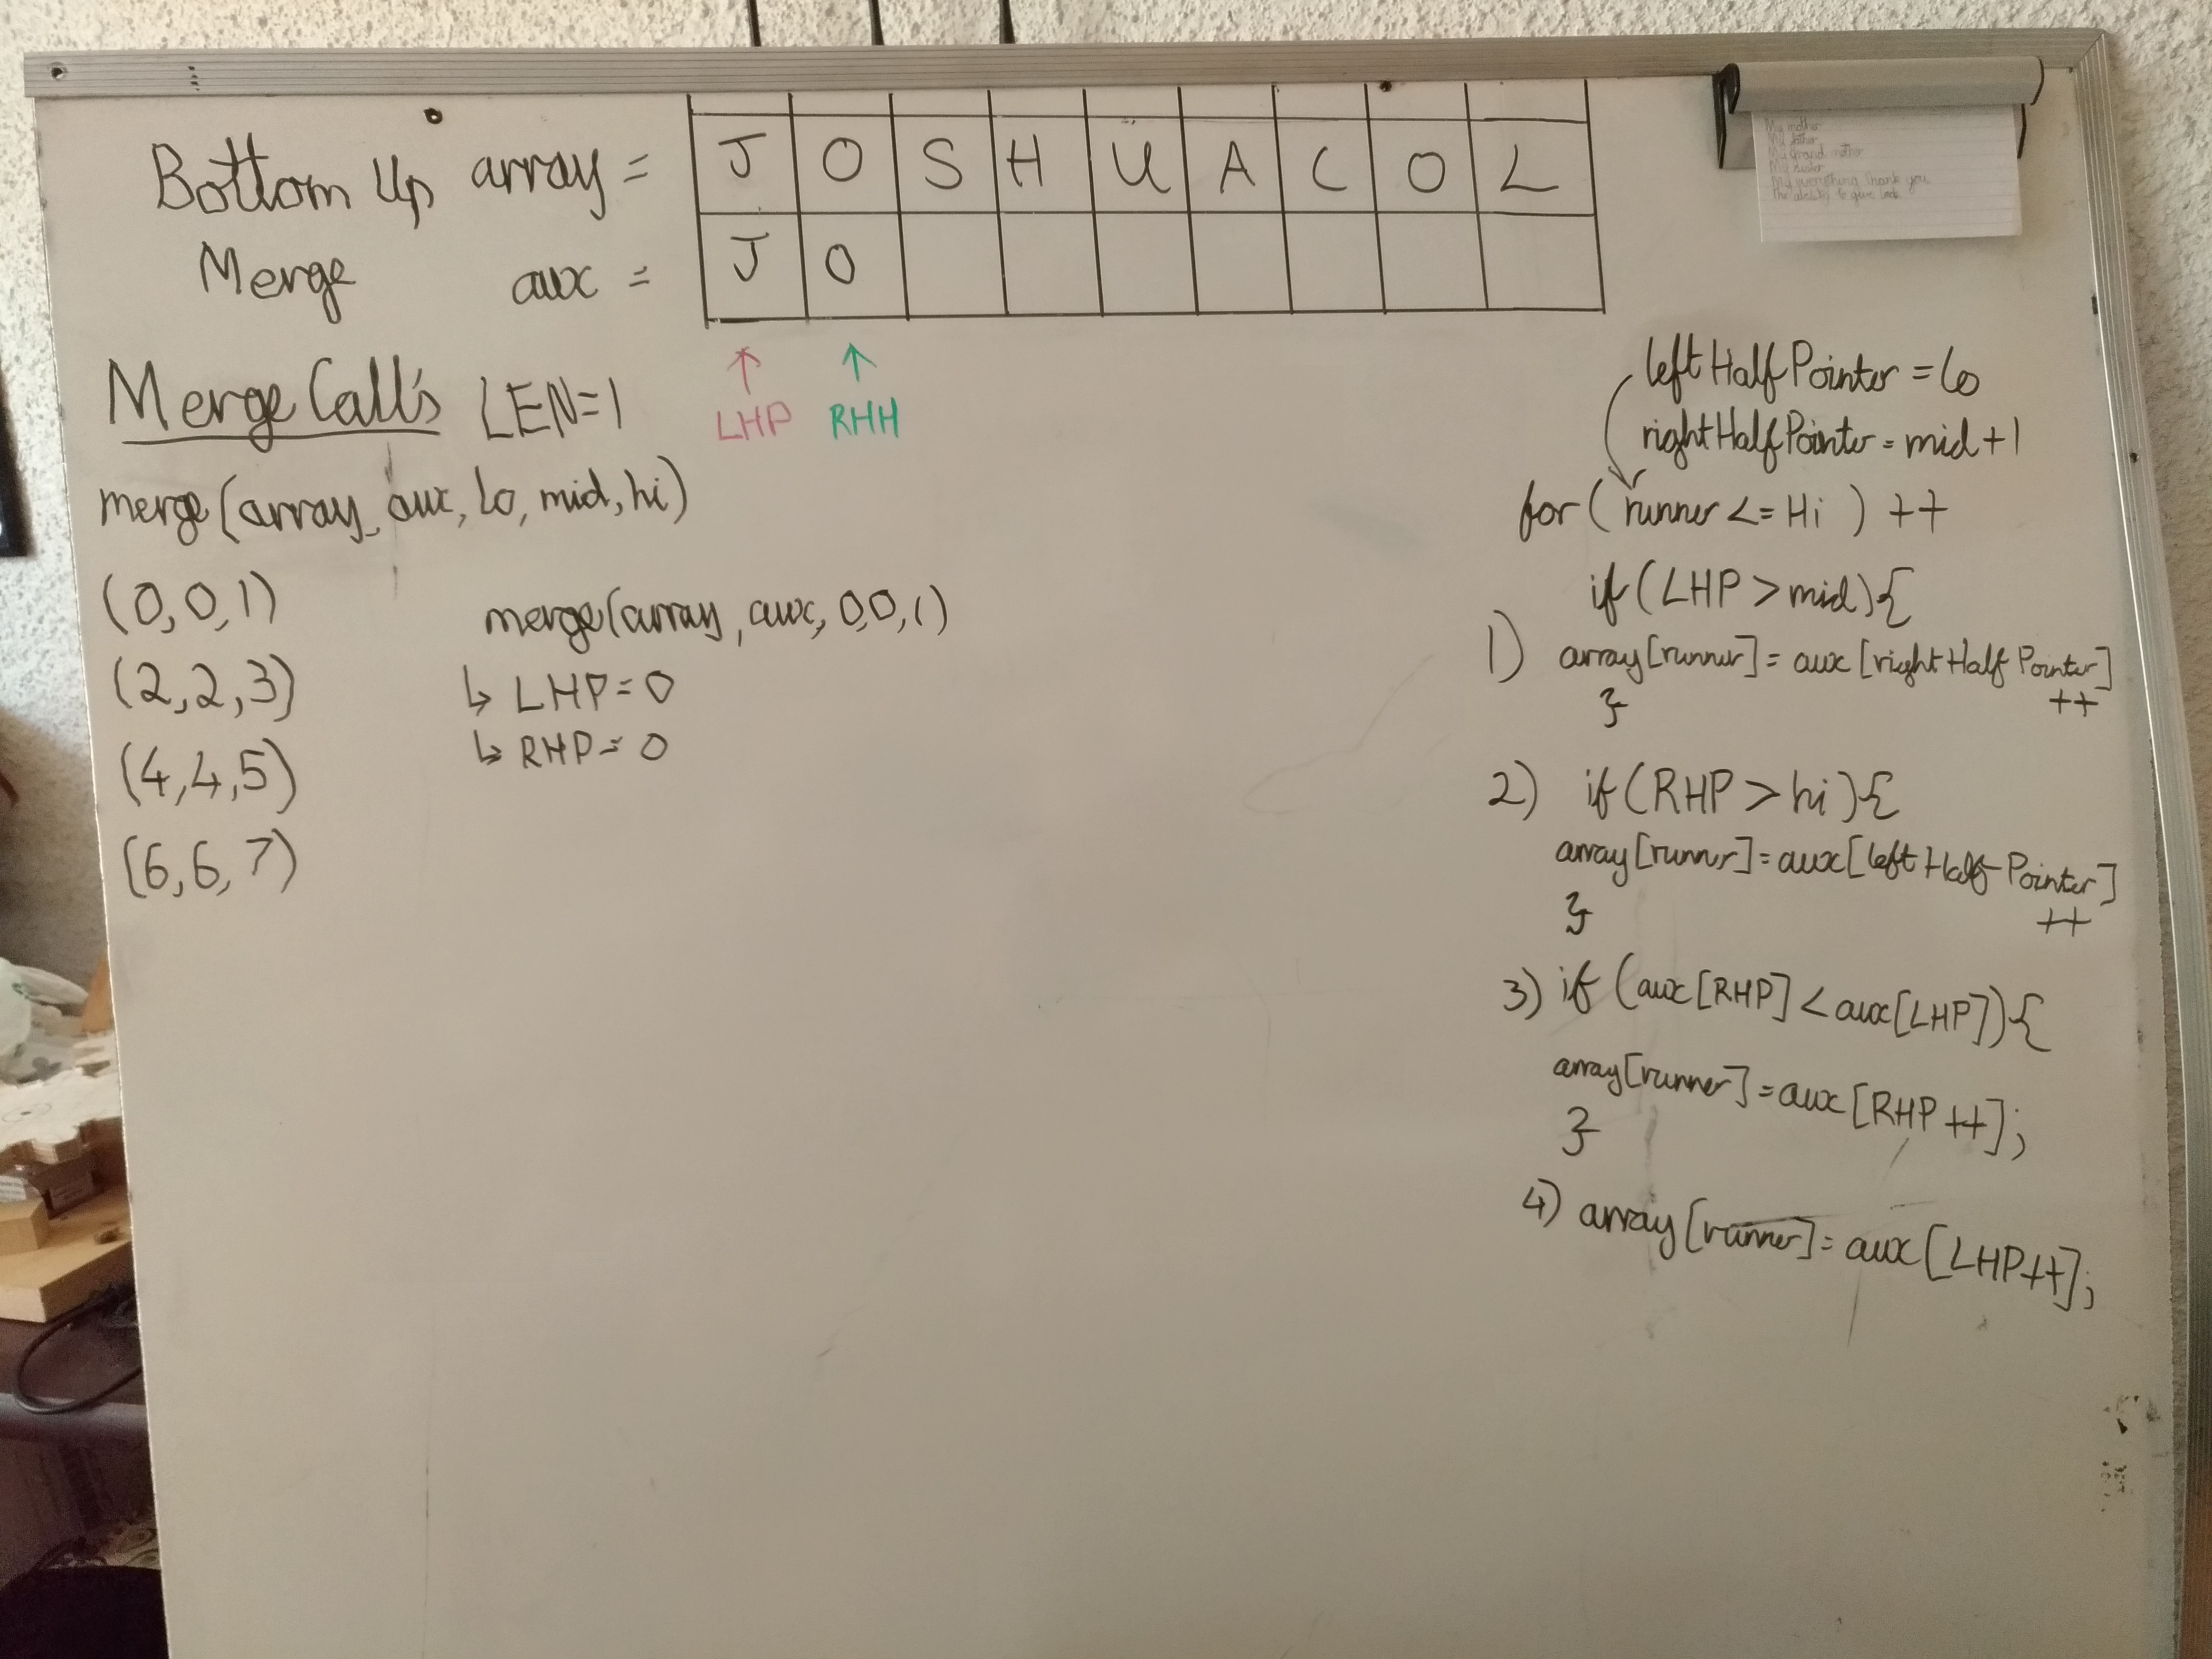 Bottom Up array = J O S H U A C O L
Merge aux = J O
Merge Call's LEN=1
↑ ↑
LHP RHH
merge(array, aux, lo, mid, hi)
(0,0,1)
(2,2,3)
(4,4,5)
(6,6,7)
merge(array, aux, 0,0,1)
↳ LHP=0
↳ RHP=0
leftHalfPointer = lo
rightHalfPointer = mid+1
for( runner <= Hi ) ++
if(LHP > mid){
1) array[runner] = aux[rightHalfPointer]
++
}
2) if(RHP > hi){
array[runner] = aux[leftHalfPointer]
++
}
3) if (aux[RHP] < aux[LHP]){
array[runner] = aux[RHP++];
}
4) array[runner] = aux[LHP++];
My mother
My father
My Grand mother
My sister
My everything Thank you
The ability to give back